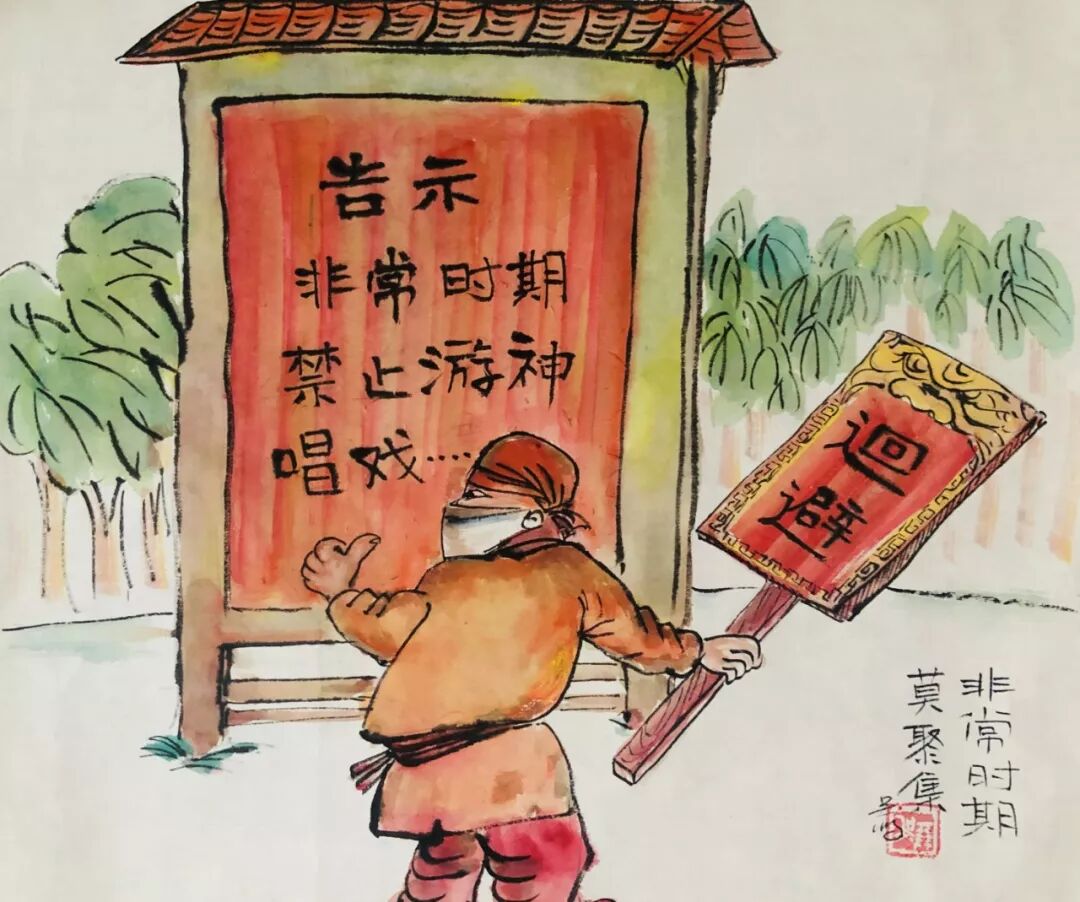 告示
非常时期
禁止游神
唱戏……
迴避
非常时期
莫聚集